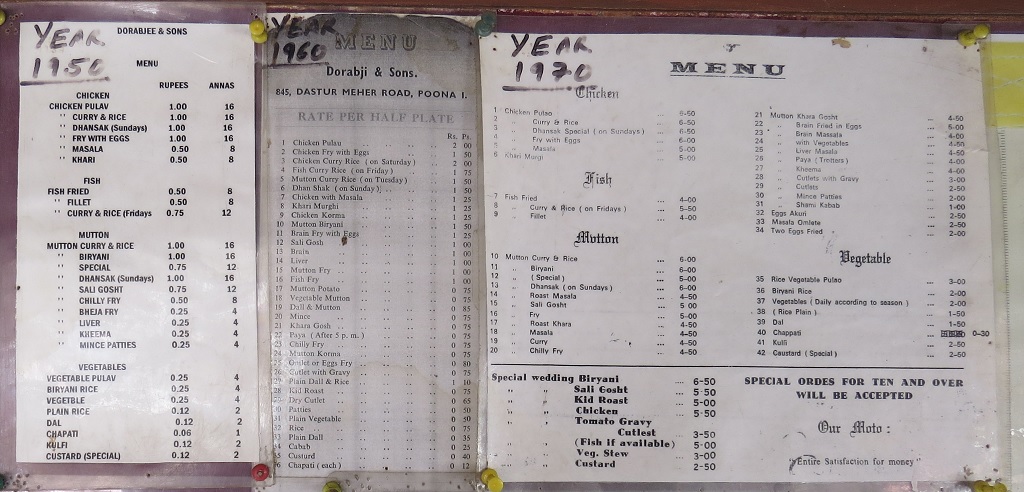 YEAR
1950
DORABJEE & SONS
MENU
RUPEES ANNAS
CHICKEN
CHICKEN PULAV 1.00 16
" CURRY & RICE 1.00 16
" DHANSAK (Sundays) 1.00 16
" FRY WITH EGGS 1.00 16
" MASALA 0.50 8
" KHARI 0.50 8
FISH
FISH FRIED 0.50 8
" FILLET 0.50 8
" CURRY & RICE (Fridays 0.75 12
MUTTON
MUTTON CURRY & RICE 1.00 16
" BIRYANI 1.00 16
" SPECIAL 0.75 12
" DHANSAK (Sundays) 1.00 16
" SALI GOSHT 0.75 12
" CHILLY FRY 0.50 8
" BHEJA FRY 0.50 8
" LIVER 0.25 4
" KHEEMA 0.25 4
" MINCE PATTIES 0.25 4
VEGETABLES
VEGETABLE PULAV 0.25 4
BIRYANI RICE 0.25 4
VEGETBLE 0.25 4
PLAIN RICE 0.12 2
DAL 0.12 2
CHAPATI 0.06 1
KULFI 0.12 2
CUSTARD (SPECIAL) 0.12 2
YEAR
1960
MENU
Dorabji & Sons.
845, DASTUR MEHER ROAD, POONA I.
RATE PER HALF PLATE
Rs. Ps.
1 Chicken Pulau 2 00
2 Chicken Fry with Eggs 1 50
3 Chicken Curry Rice (on Saturday) 2 00
4 Fish Curry Rice (on Friday) 1 75
5 Mutton Curry Rice (on Tuesday) 1 50
6 Dhan Shak (on Sunday) 1 50
7 Chicken with Masala 1 25
8 Khari Murghi 1 25
9 Chicken Korma 1 25
10 Mutton Biryani 1 50
11 Brain Fry with Eggs 1 25
12 Sali Gosh 1 00
13 Brain 1 00
14 Liver 1 00
15 Mutton Fry 1 00
16 Fish Fry 1 00
17 Mutton Potato 0 75
18 Vegetable Mutton 0 75
19 Dall & Mutton 0 85
20 Mince 0 75
21 Khara Gosh 0 75
22 Paya (After 5 p. m.) 0 75
23 Chilly Fry 0 75
24 Mutton Korma 0 75
25 Omlet or Eggs Fry 0 80
26 Cutlet with Gravy 0 75
27 Plain Dall & Rice 1 10
28 Kid Roast 0 75
Dry Cutlet 0 65
Patties 0 50
Plain Vegetable 0 50
Rice 0 75
Plain Dall 0 35
Cabab 0 25
Custurd 0 40
Chapati (each) 0 12
YEAR
1970
MENU
Chicken
1 Chicken Pulao ... 6-50
2 " Curry & Rice ... 6-50
3 " Dhansak Special (on Sundays) ... 6-50
4 " Fry with Eggs ... 6-00
5 " Masala ... 5-00
6 Khari Murgi ... 5-00
Fish
7 Fish Fried ... 4-00
8 " Curry & Rice (on Fridays) ... 5-50
9 " Fillet ... 4-00
Mutton
10 Mutton Curry & Rice ... 6-00
11 " Biryani ... 6-00
12 " (Special) ... 5-00
13 " Dhansak (on Sundays) ... 6-00
14 " Roast Masala ... 4-50
15 " Sali Gosht ... 5 00
16 " Fry ... 5-00
17 " Roast Khara ... 4-50
18 " Masala ... 4-50
19 " Curry ... 4-50
20 " Chilly Fry ... 4-50
21 Mutton Khara Gosht ... 4-50
22 " Brain Fried in Eggs ... 5-00
23 " Brain Massala ... 4-00
24 " with Vegetables ... 4-50
25 " Liver Masala ... 4-50
26 " Paya (Trotters) ... 4-00
27 " Kheema ... 4-00
28 " Cutlets with Gravy ... 3-00
29 " Cutlets ... 2-50
30 " Mince Patties ... 2-00
31 " Shami Kabab ... 1-00
32 Eggs Akuri ... 2-50
33 Masala Omlete ... 2-50
34 Two Eggs Fried ... 2-00
Vegetable
35 Rice Vegetable Pulao ... 3-00
36 Biryani Rice ... 2-00
37 Vegetables (Daily according to season) ... 2-00
38 (Rice Plain) ... 1-50
39 Dal ... 1-50
40 Chappati ... 0-30
41 Kulfi ... 2-50
42 Caustard (Special) ... 2-50
Special wedding Biryani ... 6-50
" " Sali Gosht ... 5 50
" " Kid Roast ... 5-00
" " Chicken ... 5-50
" " Tomato Gravy
Cutlest ... 3-50
" " (Fish if available) 5-00
" " Veg. Stew ... 3-00
" " Custard ... 2-50
SPECIAL ORDES FOR TEN AND OVER
WILL BE ACCEPTED
Our Moto :
"Entire Satisfaction for money"